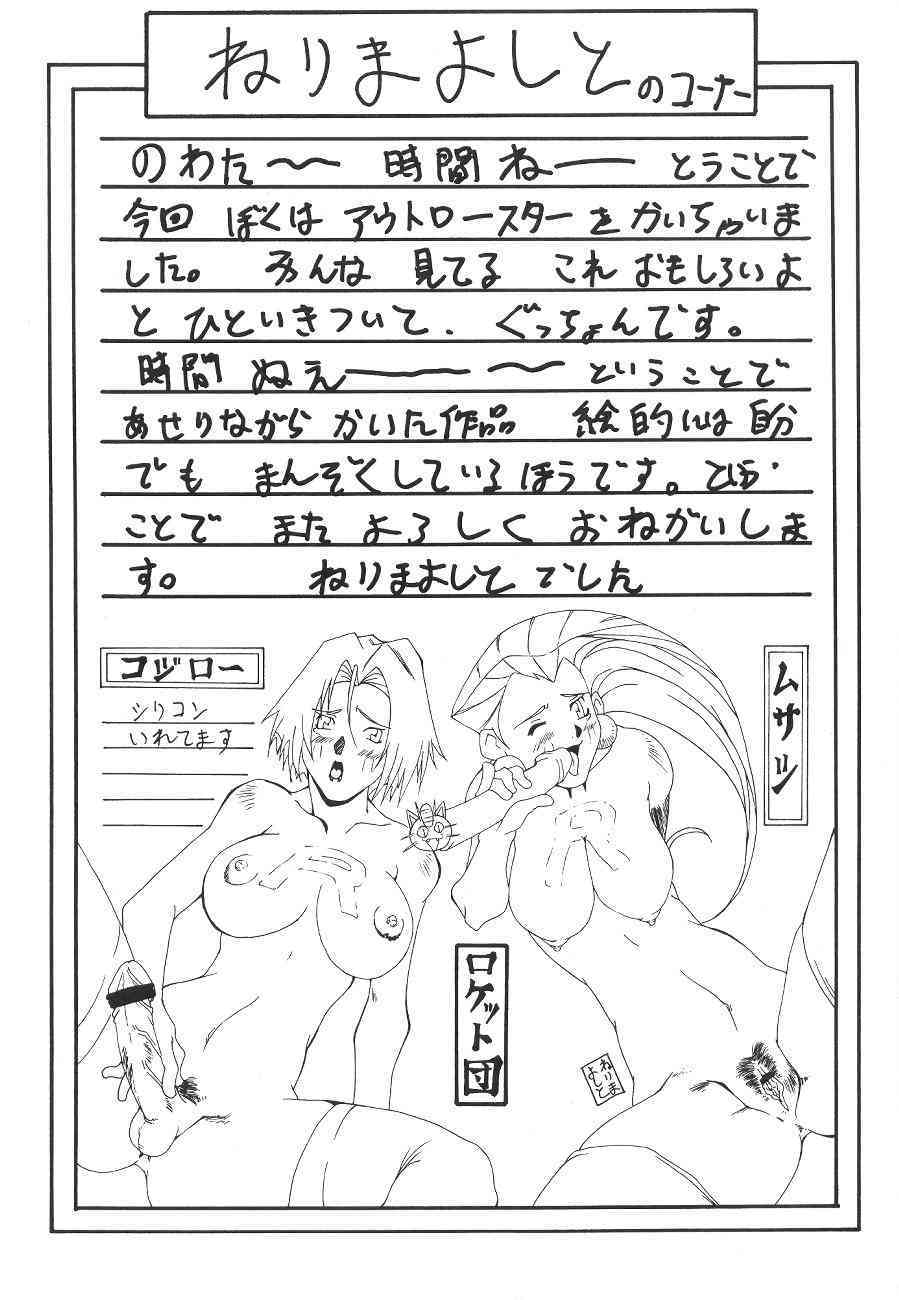 ねりまよしとのコーナー
のわた〜〜 時間ねー とうことで
今回 ぼくは アウトロースターを かいちゃいま
した。 みんな 見てる これ おもしろいよ
と ひといきついて、 ぐっちょんです。
時間 ぬぇ〜〜 ということで
あせりながら かいた作品 絵的には 自分
でも まんぞくしているほうです。
ことで また よろしく おねがいしま
す。 ねりまよしと でした
コジロー
シリコン
いれてます
ムサシ
ロケット団
ねりま
よしと